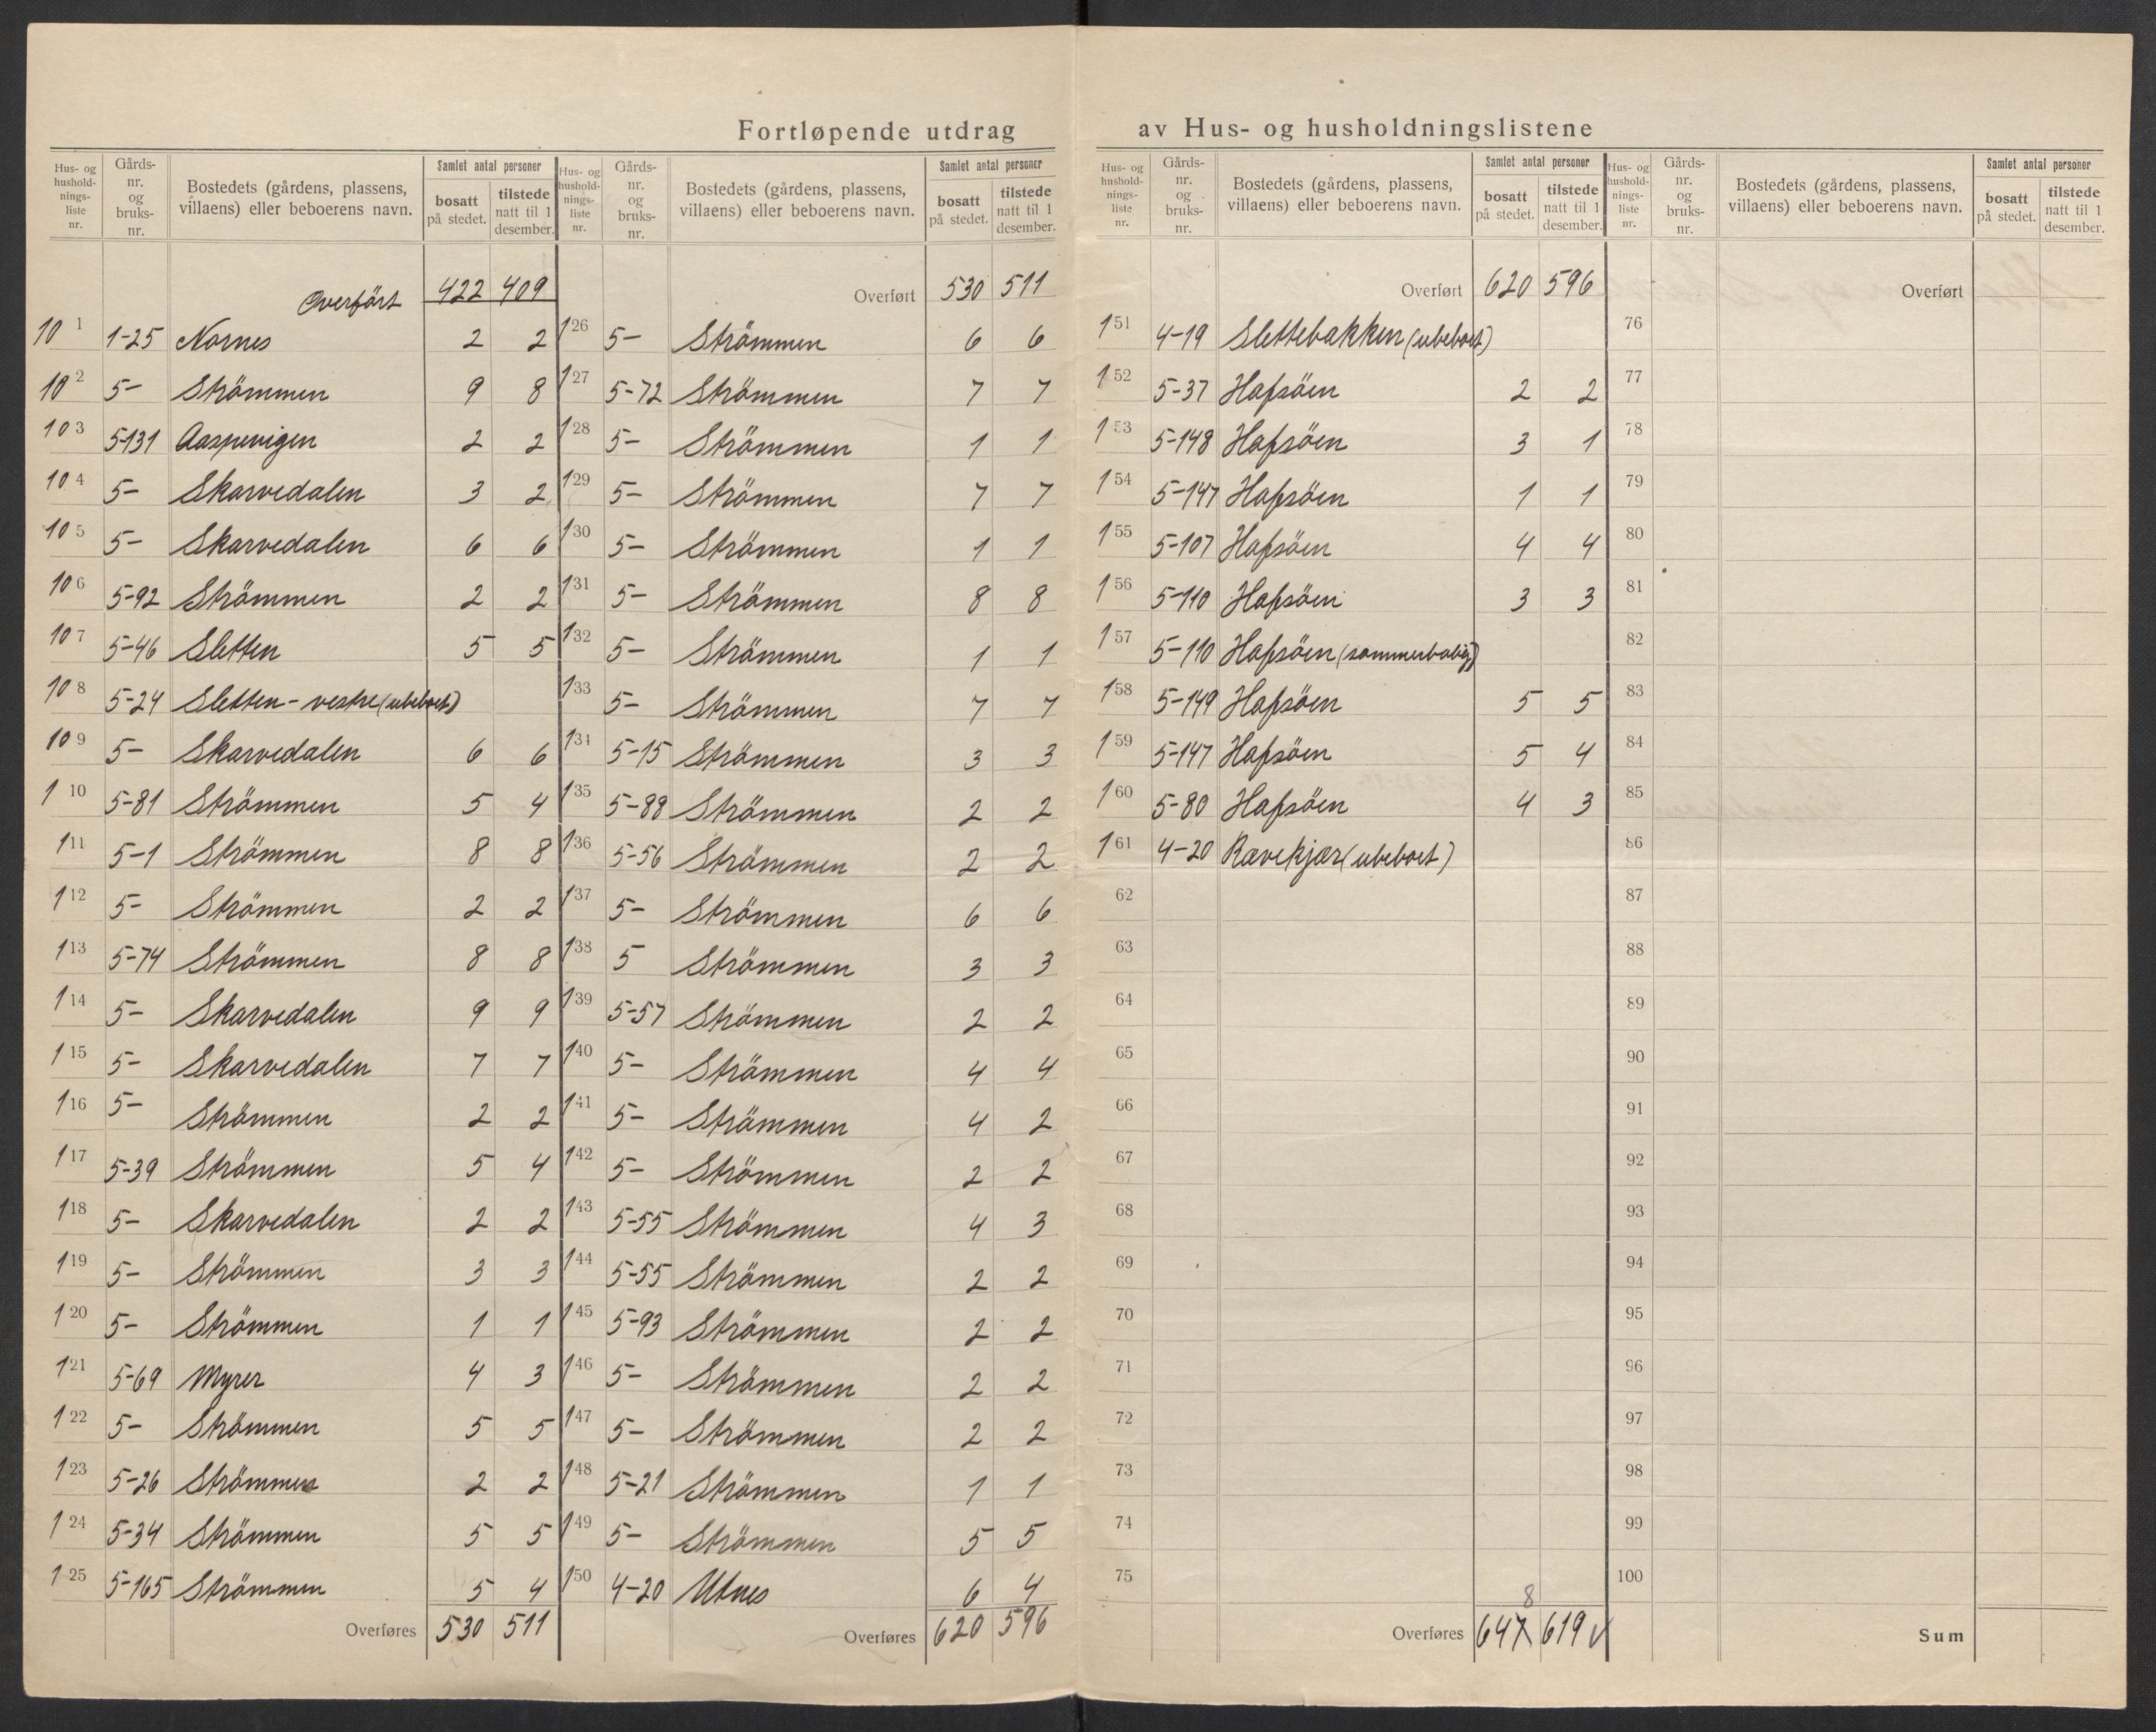 Fortløpende utdrag av Hus- og husholdningslistene
Hus- og husholdningsliste nr. | Gårdsnr. og bruksnr. | Bostedets (gårdens, plassens, villaens) eller beboerens navn. | Samlet antal personer: bosatt på stedet. | tilstede natt til 1 desember.
Overfört 422 409
101 1-25 Nornes 2 2
102 5- Strömmen 9 8
103 5-131 Aaspevigen 2 2
104 5- Skarvedalen 3 2
105 5- Skarvedalen 6 6
106 5-92 Strömmen 2 2
107 5-46 Sletten 5 5
108 5-24 Sletten - vestre (ubeboet)
109 5- Skarvedalen 6 6
110 5-81 Strömmen 5 4
111 5-1 Strömmen 8 8
112 5- Strömmen 2 2
113 5-74 Strömmen 8 8
114 5- Skarvedalen 9 9
115 5- Skarvedalen 7 7
116 5- Strömmen 2 2
117 5-39 Strömmen 5 4
118 5- Skarvedalen 2 2
119 5- Strömmen 3 3
120 5- Strömmen 1 1
121 5-69 Myrer 4 3
122 5- Strömmen 5 5
123 5-26 Strömmen 2 2
124 5-34 Strömmen 5 5
125 5-165 Strömmen 5 4
Overføres 530 511
Hus- og husholdningsliste nr. | Gårdsnr. og bruksnr. | Bostedets (gårdens, plassens, villaens) eller beboerens navn. | Samlet antal personer: bosatt på stedet. | tilstede natt til 1 desember.
Overført 530 511
126 5- Strömmen 6 6
127 5-72 Strömmen 7 7
128 5- Strömmen 1 1
129 5- Strömmen 7 7
130 5- Strömmen 1 1
131 5- Strömmen 8 8
132 5- Strömmen 1 1
133 5- Strömmen 7 7
134 5-15 Strömmen 3 3
135 5-88 Strömmen 2 2
136 5-56 Strömmen 2 2
137 5- Strömmen 6 6
138 5 Strömmen 3 3
139 5-57 Strömmen 2 2
140 5- Strömmen 4 4
141 5- Strömmen 4 2
142 5- Strömmen 2 2
143 5-55 Strömmen 4 3
144 5-55 Strömmen 2 2
145 5-93 Strömmen 2 2
146 5- Strömmen 2 2
147 5- Strömmen 2 2
148 5-21 Strömmen 1 1
149 5- Strömmen 5 5
150 4-20 Utnes 6 4
Overføres 620 596
Hus- og husholdningsliste nr. | Gårdsnr. og bruksnr. | Bostedets (gårdens, plassens, villaens) eller beboerens navn. | Samlet antal personer: bosatt på stedet. | tilstede natt til 1 desember.
Overført 620 596
151 4-19 Slettebakken (ubeboet)
152 5-37 Hafsöen 2 2
153 5-148 Hafsöen 3 1
154 5-147 Hafsöen 1 1
155 5-107 Hafsöen 4 4
156 5-110 Hafsöen 3 3
157 5-110 Hafsöen (sommerbolig)
158 5-149 Hafsöen 5 5
159 5-147 Hafsöen 5 4
160 5-80 Hafsöen 4 3
161 4-20 Rævekjær (ubeboet)
62
63
64
65
66
67
68
69
70
71
72
73
74
75
8
Overføres 647 619 ✓
Hus- og husholdningsliste nr. | Gårdsnr. og bruksnr. | Bostedets (gårdens, plassens, villaens) eller beboerens navn. | Samlet antal personer: bosatt på stedet. | tilstede natt til 1 desember.
Overført
76
77
78
79
80
81
82
83
84
85
86
87
88
89
90
91
92
93
94
95
96
97
98
99
100
Sum